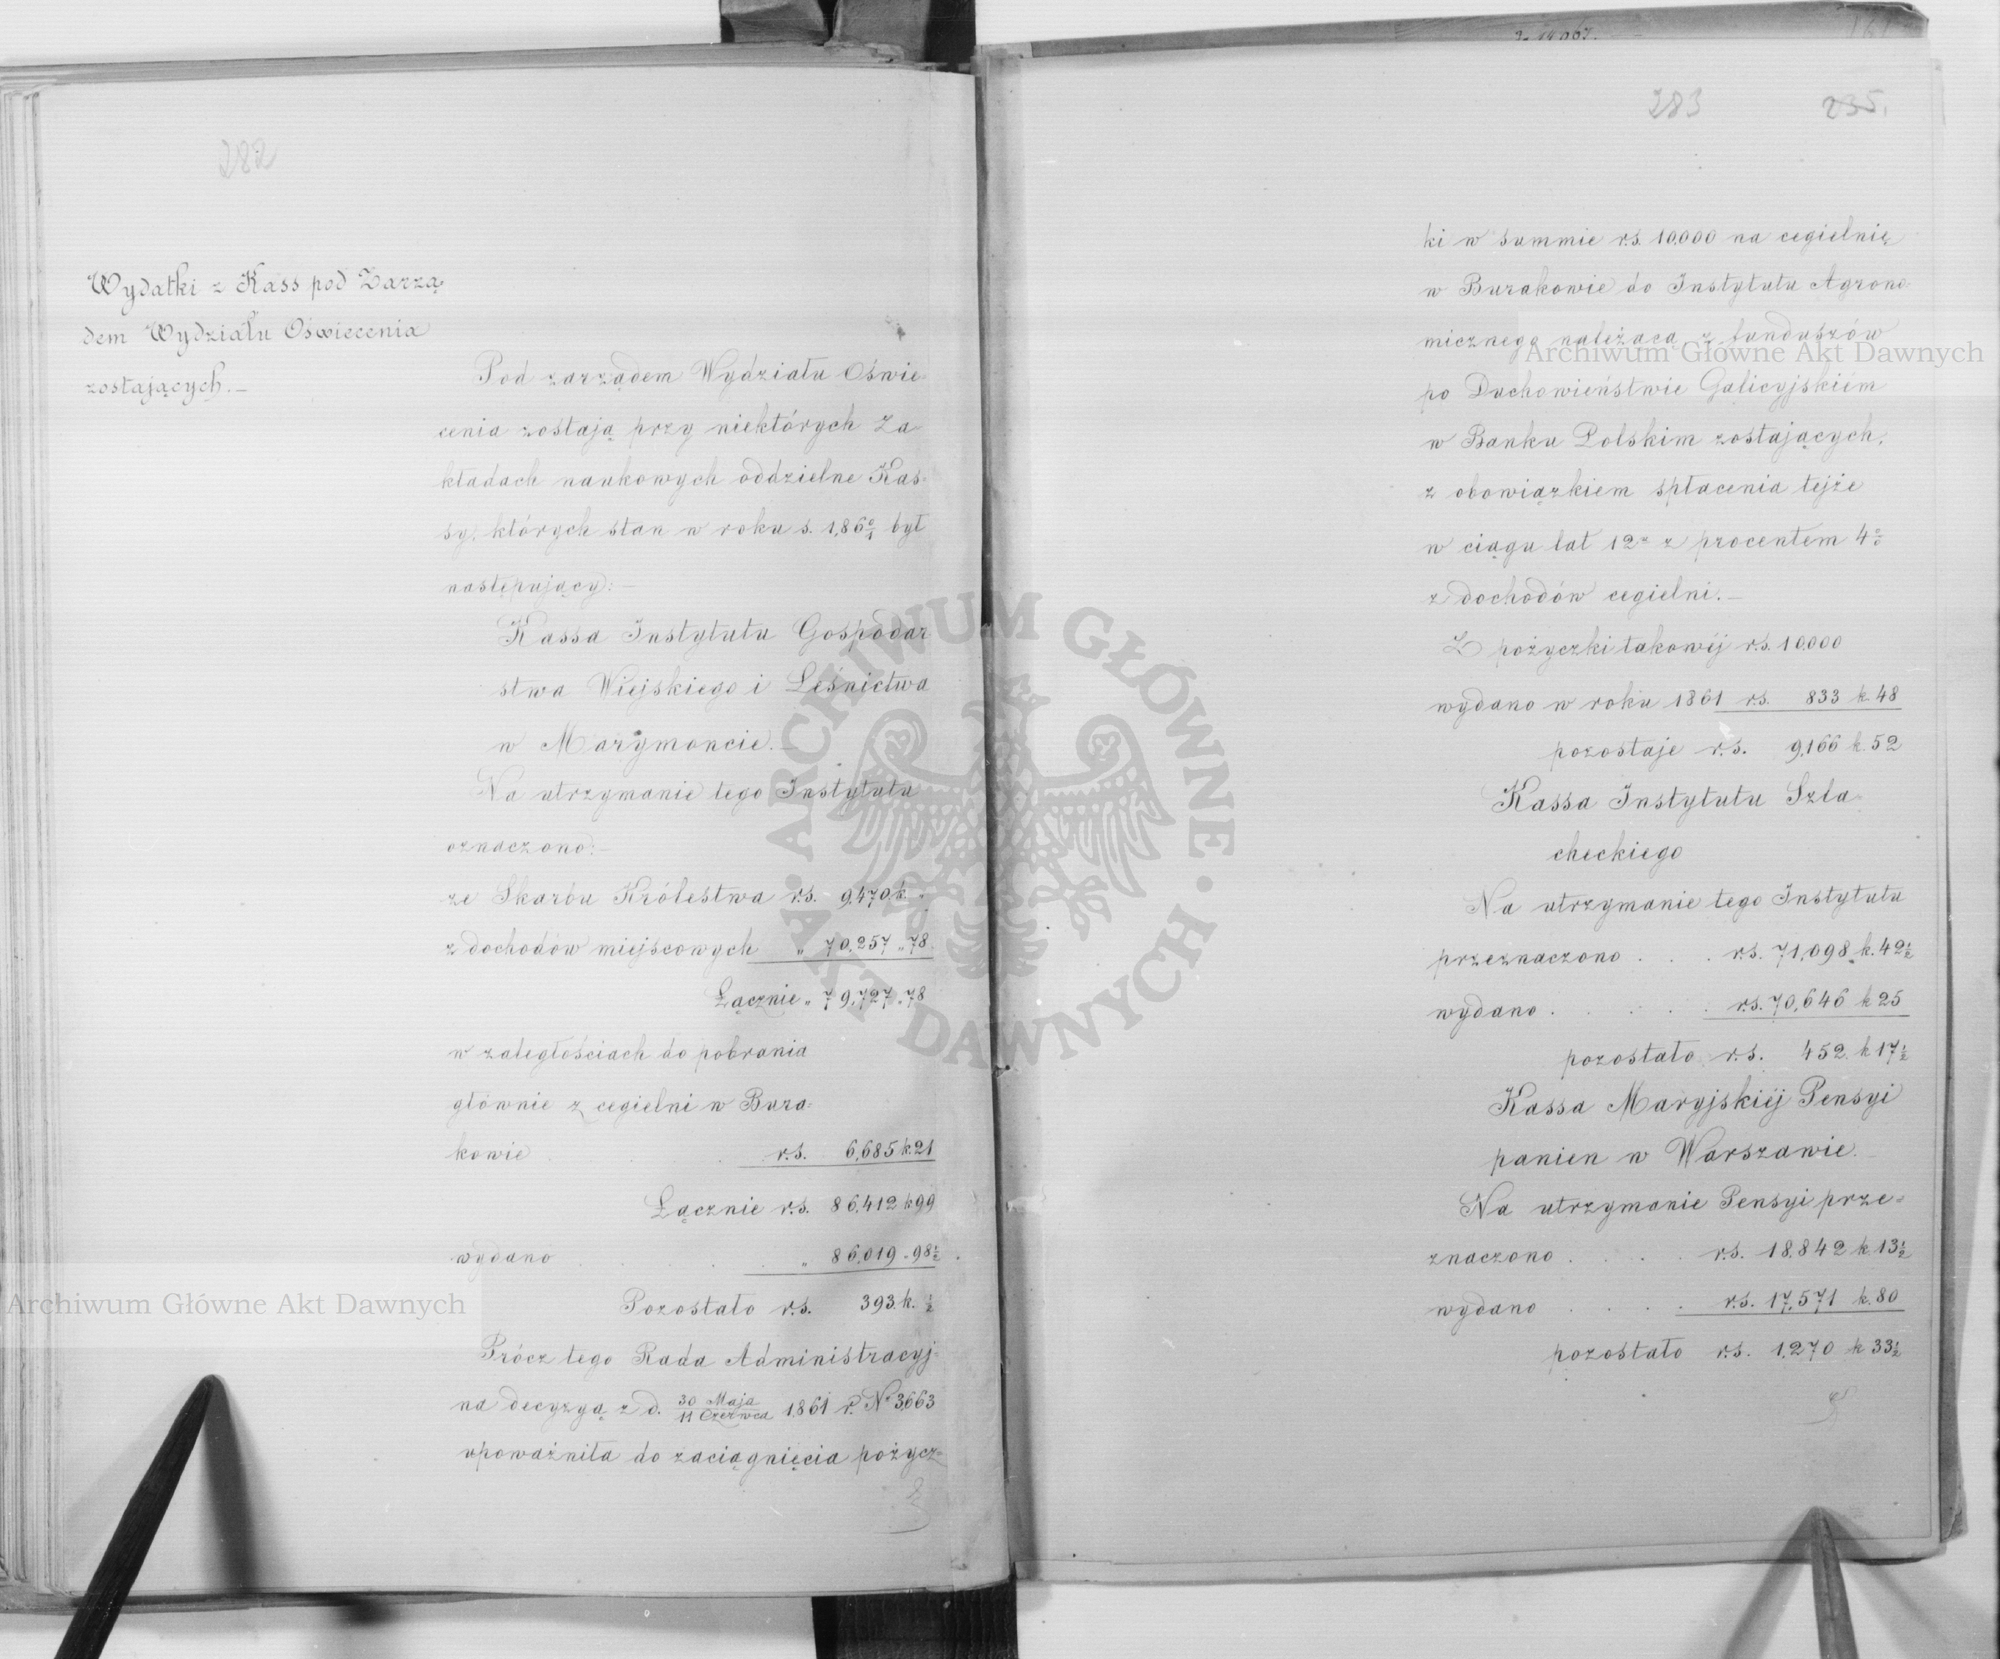 282
Wydatki z Kass pod Zarzą
dem Wydziału Oświecenia
zostających.—
Pod zarządem Wydziału Oświe
cenia zostają przy niektórych Za
kładach naukowych oddzielne Kas-
sy, których stan w roku s. 1,860/1 był
następujący:—
Kassa Instytutu Gospodar
stwa Wiejskiego i Leśnictwa
w Marymoncie.—
Na utrzymanie tego Instytutu
oznaczono:—
ze Skarbu Królestwa r.s. 9,470 k. „
z dochodów miejscowych „ 70,257 „ 78.
Łącznie „ 79,727 „ 78
w zaległościach do pobrania
głównie z cegielni w Bura-
kowie . . . r.s. 6,685 k. 21
Łącznie r.s. 86,412 k 99
wydano . . . „ 86,019 „ 98½.
Pozostało r.s. 393 k. ½
Prócz tego Rada Administracyj-
na decyzyą z d. 30 Maja/11 Czerwca 1861 r. Nº 3,663
upoważniła do zaciągnięcia pożycz=
283 235.
ki w summie r.s. 10,000 na cegielnię
w Burakowie do Instytutu Agrono-
micznego należącą z funduszów
po Duchowieństwie Galicyjskiém
w Banku Polskim zostających,
z obowiązkiem spłacenia tejże
w ciągu lat 12u z procentem 4%
z dochodów cegielni.—
Z pożyczki takowéj r.s. 10,000
wydano w roku 1861 r.s. 833 k. 48
pozostaje r.s. 9,166 k. 52
Kassa Instytutu Szla
checkiego
Na utrzymanie tego Instytutu
przeznaczono . . . r.s. 71,098 k. 42½
wydano . . . . . r.s. 70,646 k 25
pozostało r.s. 452 k 17½
Kassa Maryjskiéj Pensyi
panien w Warszawie.—
Na utrzymanie Pensyi prze=
znaczono . . . . r.s. 18,842 k. 13½
wydano . . . . r.s. 17,571 k. 80
pozostało r.s. 1,270 k 33½
Archiwum Główne Akt Dawnych
Archiwum Główne Akt Dawnych
ARCHIWUM GŁÓWNE · AKT DAWNYCH ·